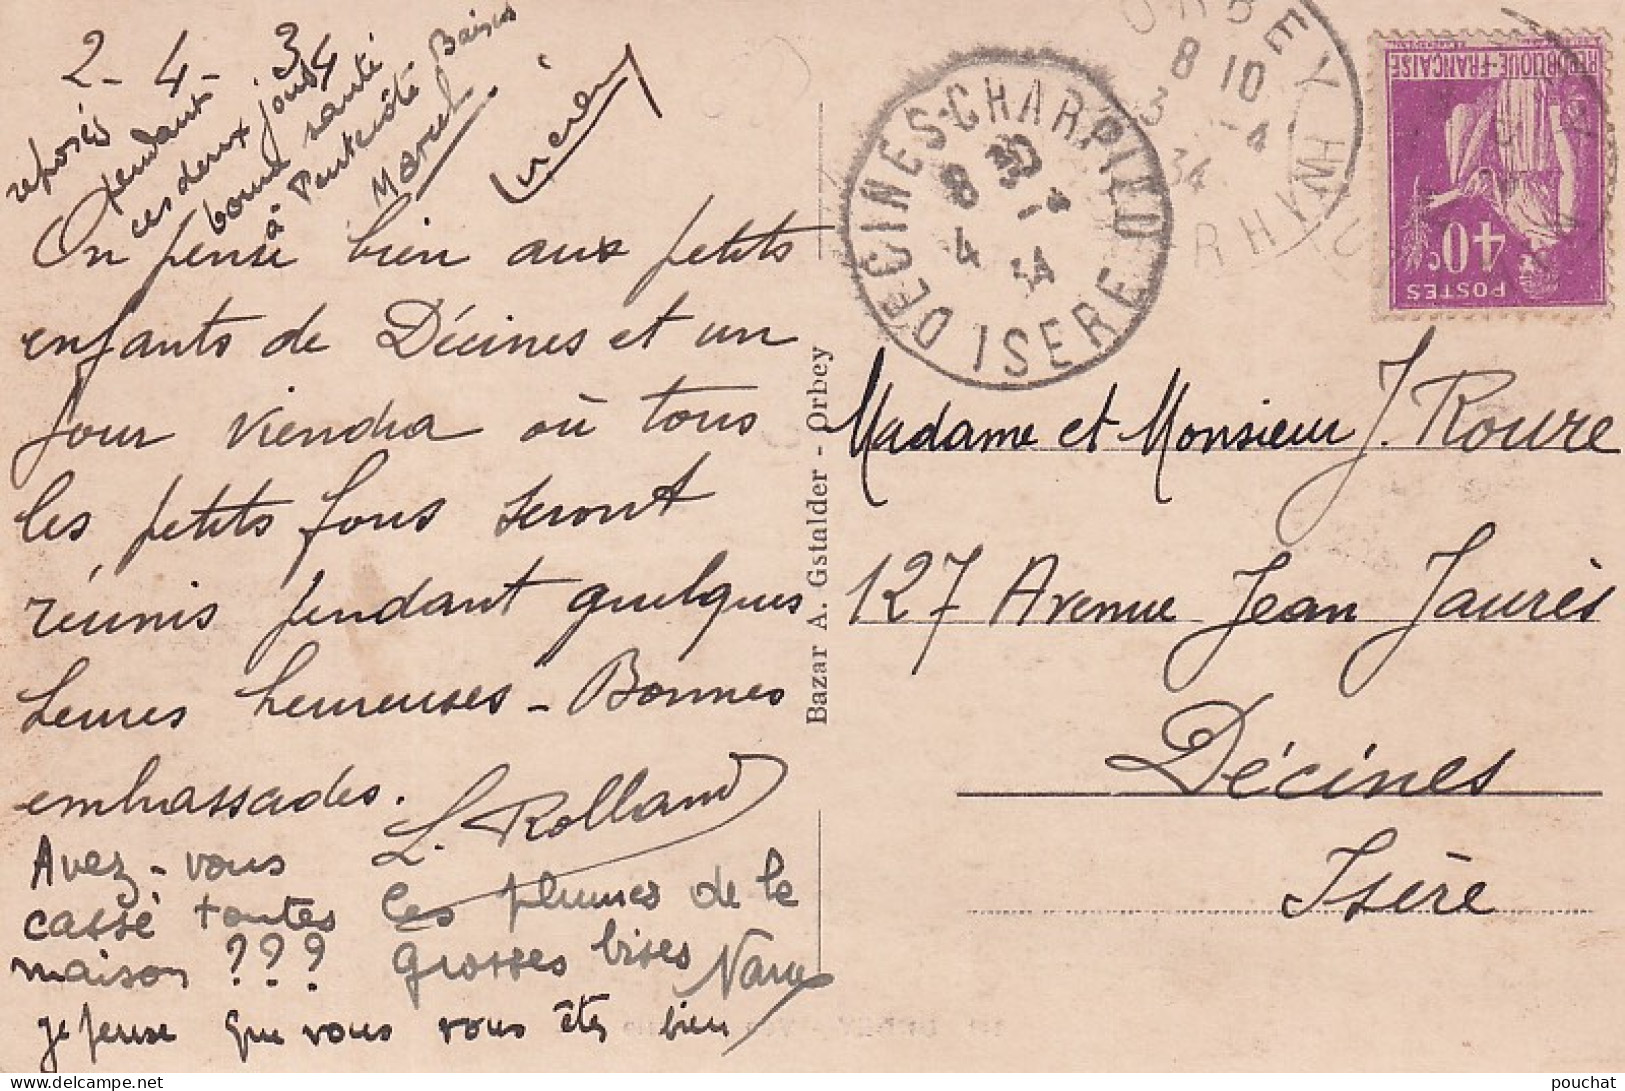 2-4-34
On pense bien aux petits
enfants de Décines et un
jour viendra où tous
les petits fous seront
réunis pendant quelques
heures heureuses - Bonnes
embrassades.
L. Rolland
Avez-vous
cassé toutes les plumes de la
maison ??? grosses bises
je pense que vous vous êtes bien
reposés
pendant
ces deux jours
bonne santé
à
Baisers
Marcel
Bazar A. Gstalder - Orbey
DECINES-CHARPIEU
8 30
4 -4
34
ISERE
ORBEY
8 10
3 -4
34
HAUT RHIN
REPUBLIQUE-FRANÇAISE
40c
POSTES
Madame et Monsieur J. Roure
127 Avenue Jean Jaurès
Décines
Isère
pouchat